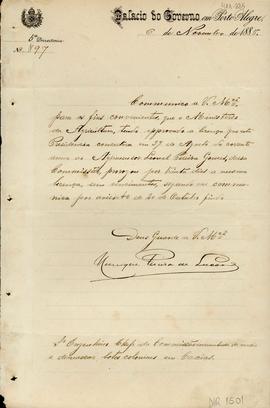 Palacio do Governo em Porto Alegre,
6 de Novembro de 1885.
5ª Directoria
N. 897
Communico a V. Mcê
para os fins convenientes, que o Ministerio
da Agricultura, tendo approvado a licença que esta
Presidencia concedeu em 27 de Agosto do corrente
anno ao Agrimensor Leonel Pereira Gomes, dessa
Commissão, prorogou por trinta dias a mesma
licença sem vencimentos, segundo me communica
por aviso de 20 de Outubro findo.
Deus Guarde a V. Mcê
Henrique Pereira de Lucena
Sr. Engenheiro Chefe da Commissão
e demarcar lotes coloniaes em Caxias.
NR 1501